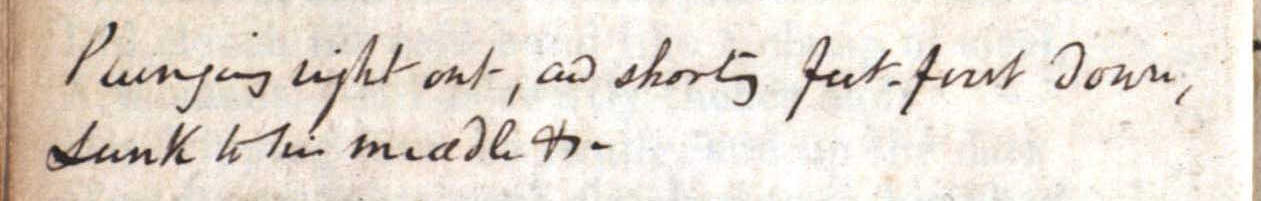 Plunging right out, and shooting feet-first down,
sunk to his middle &c-